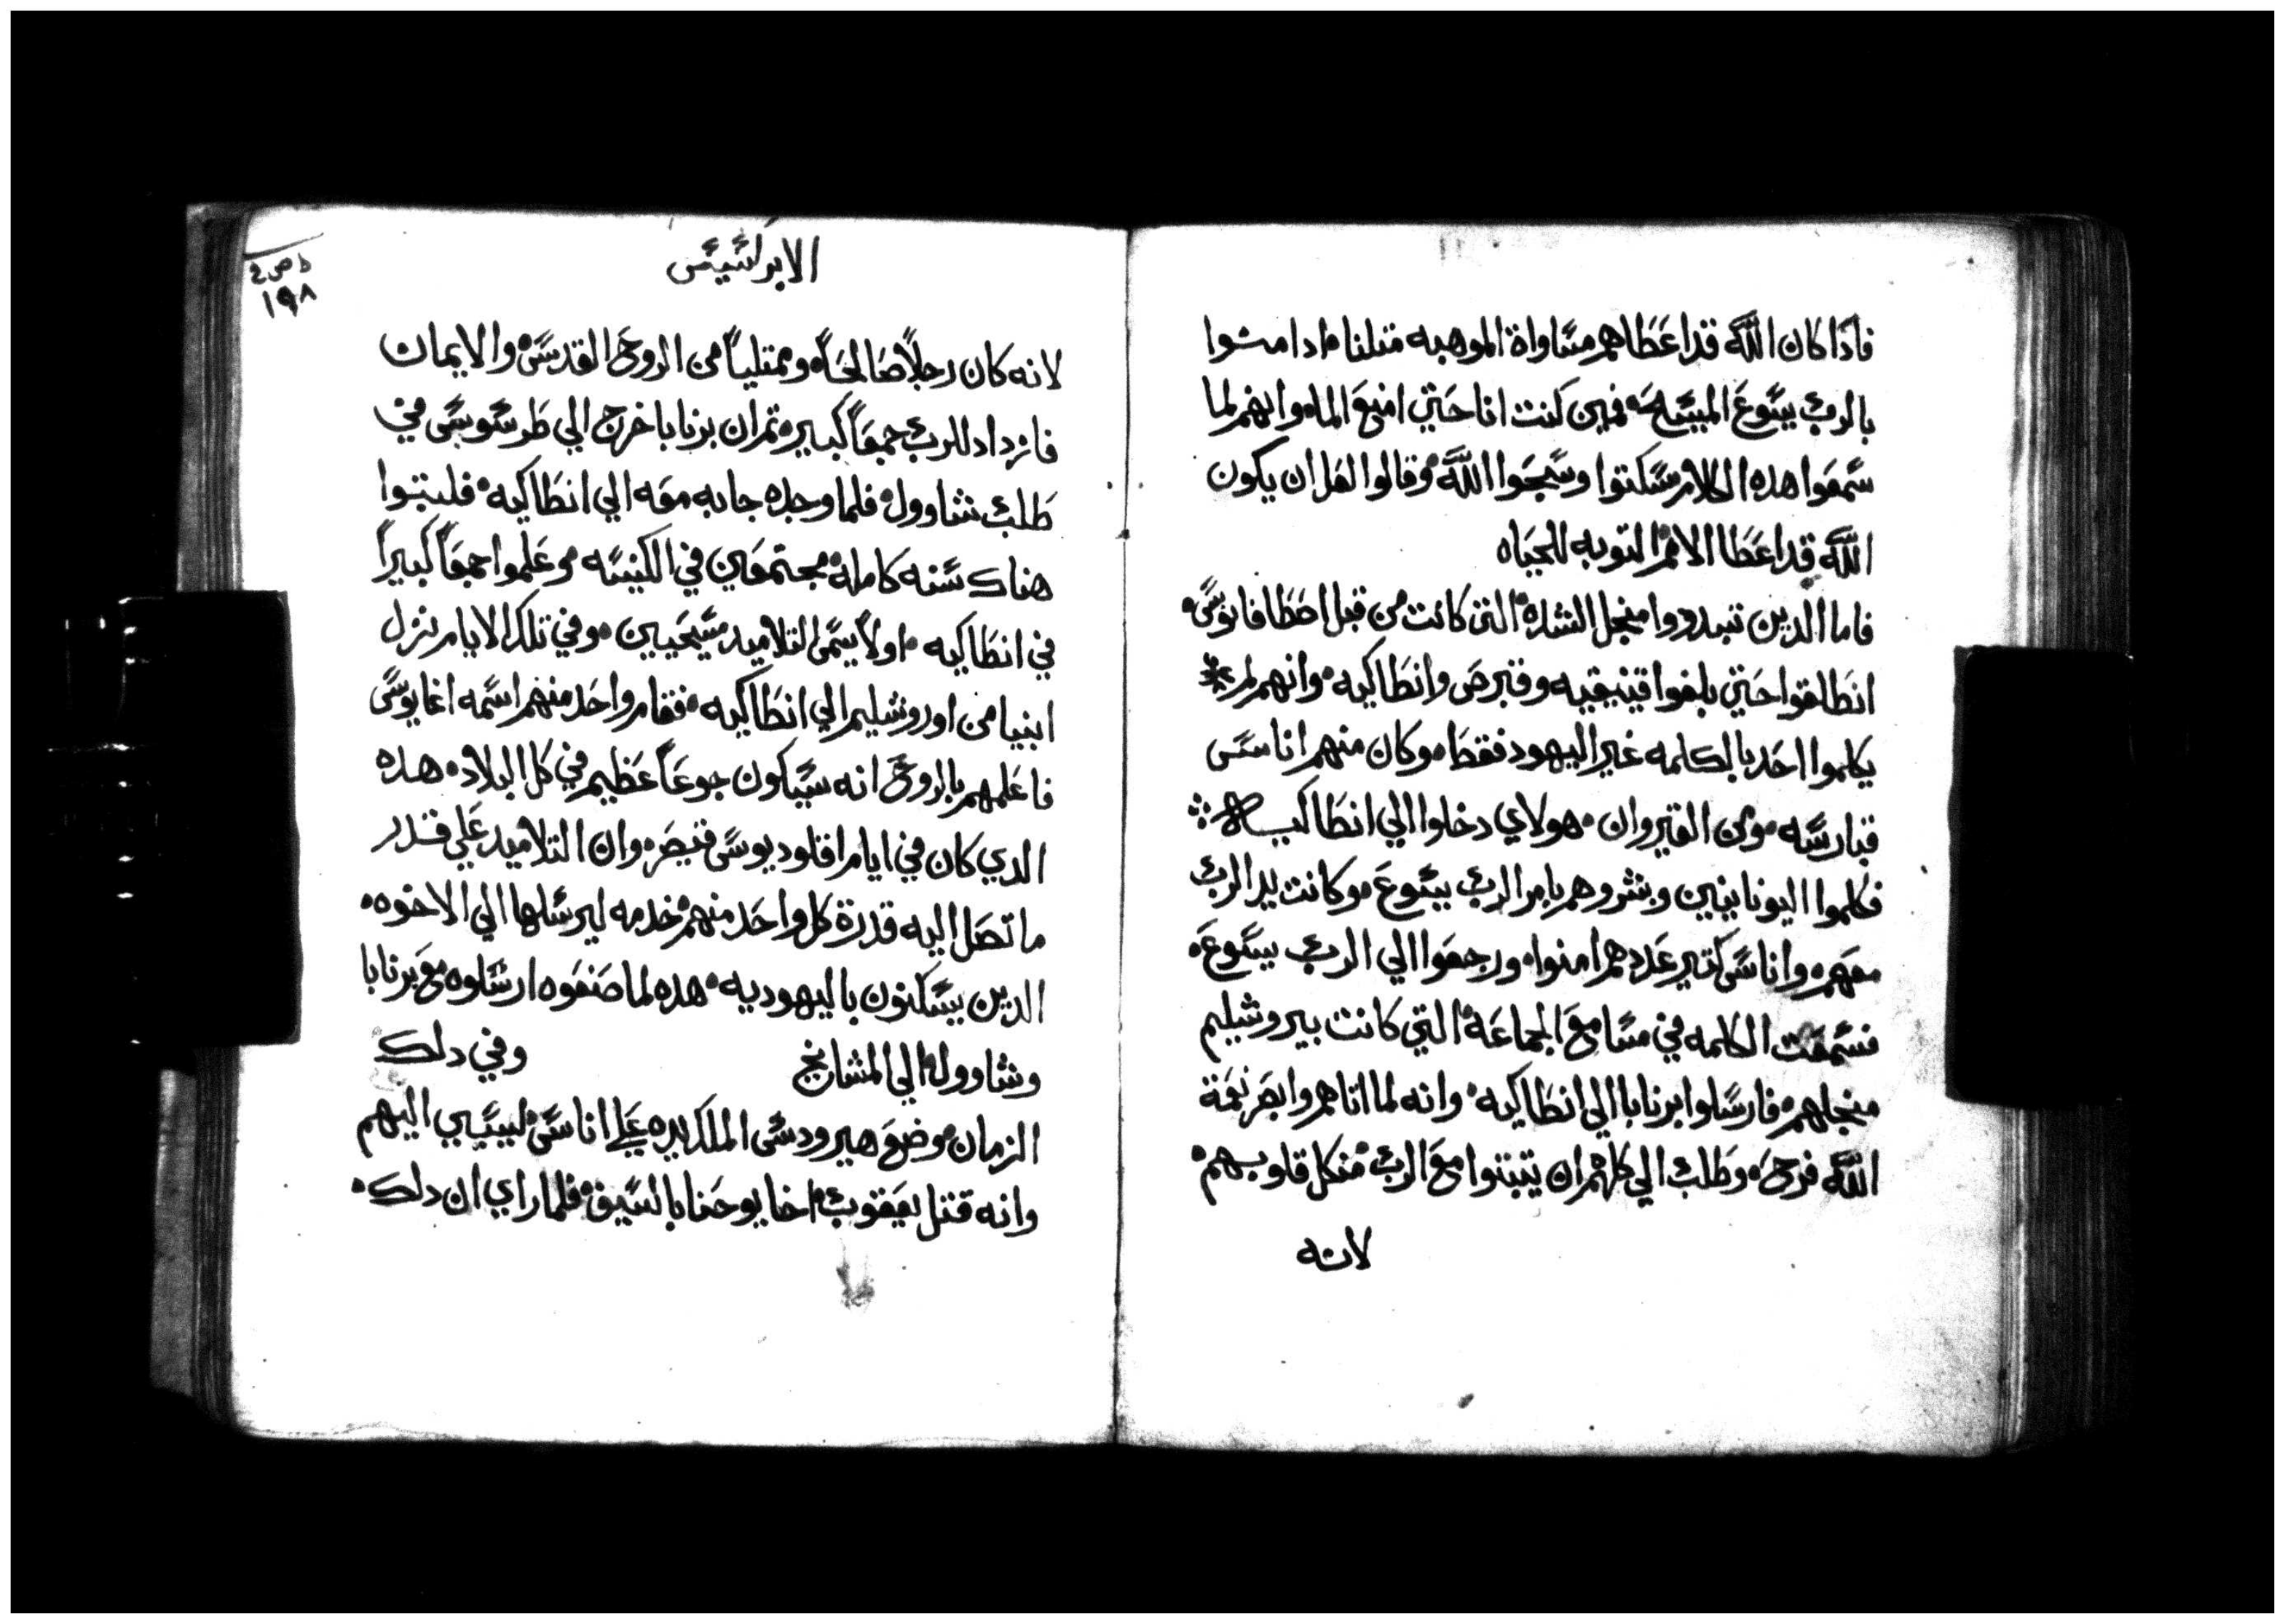 فاذا كان الله قد اعطاهم مساواة الموهبه متلنا اد امنوا
بالرب يسوع المسيح فمين كنت انا حتي امنع الماء وانهم لما
سمعوا هده الكلام سكتوا وسبحوا الله وقالوا لعل ان يكون
الله قد اعطا الامم التوبه للحياه
فاما الدين تبددوا منجل الشده التى كانت من قبل اصطافانوس
انطلقوا حتى بلغوا فينيقيه وقبرص وانطاكيه وانهم لم
يكلموا احد بالكلمه غير اليهود فقط وكان منهم اناس
قبارسه ومن القيروان هولاي دخلوا الي انطاكيه
فكلموا اليونانيين وبشروهم بامر الرب يسوع وكانت يد الرب
معهم واناس كتير عددهم امنوا ورجعوا الي الرب يسوع
فسمعت الكلمه في مسامع الجماعة التي كانت بيروشليم
منجلهم فارسلوا برنابا الي انطاكيه وانه لما اتاهم وابصر نعمة
الله فرح وطلب الي كلهم ان يتبتوا مع الرب منكل قلوبهم
لانه
الابركسيس
١٩٨
لانه كان رجلاً صالحاً وممتلياً من الروح القدس والايمان
فازداد للرب جمعاً كبير تم ان برنابا خرج الي طرسوس في
طلب شاوول فلما وجده جابه معه الي انطاكيه فلبتوا
هناك سنه كامله مجتمعين في الكنيسه وعلموا جمعاً كبيراً
في انطاكيه اولاً يسمى التلاميد مسيحيين وفي تلك الايام نزل
انبيا من اوروشليم الي انطاكيه فقام واحد منهم اسمه اغابوس
فاعلمهم بالروح انه سيكون جوعاً عظيم في كل البلاد هده
الدي كان في ايام اقلوديوس قيصر وان التلاميد علي قدر
ما تصل اليه قدرة كل واحد منهم خدمه ليرسلها الي الاخوه
الدين يسكنون باليهوديه هده لما صنعوه ارسلوه مع برنابا
وشاوول الي المشايخ وفي دلك
الزمان وضع هيرودس الملك يده علي اناس ليسيي اليهم
وانه قتل يعقوب اخا يوحنا بالسيف فلما راي ان دلك